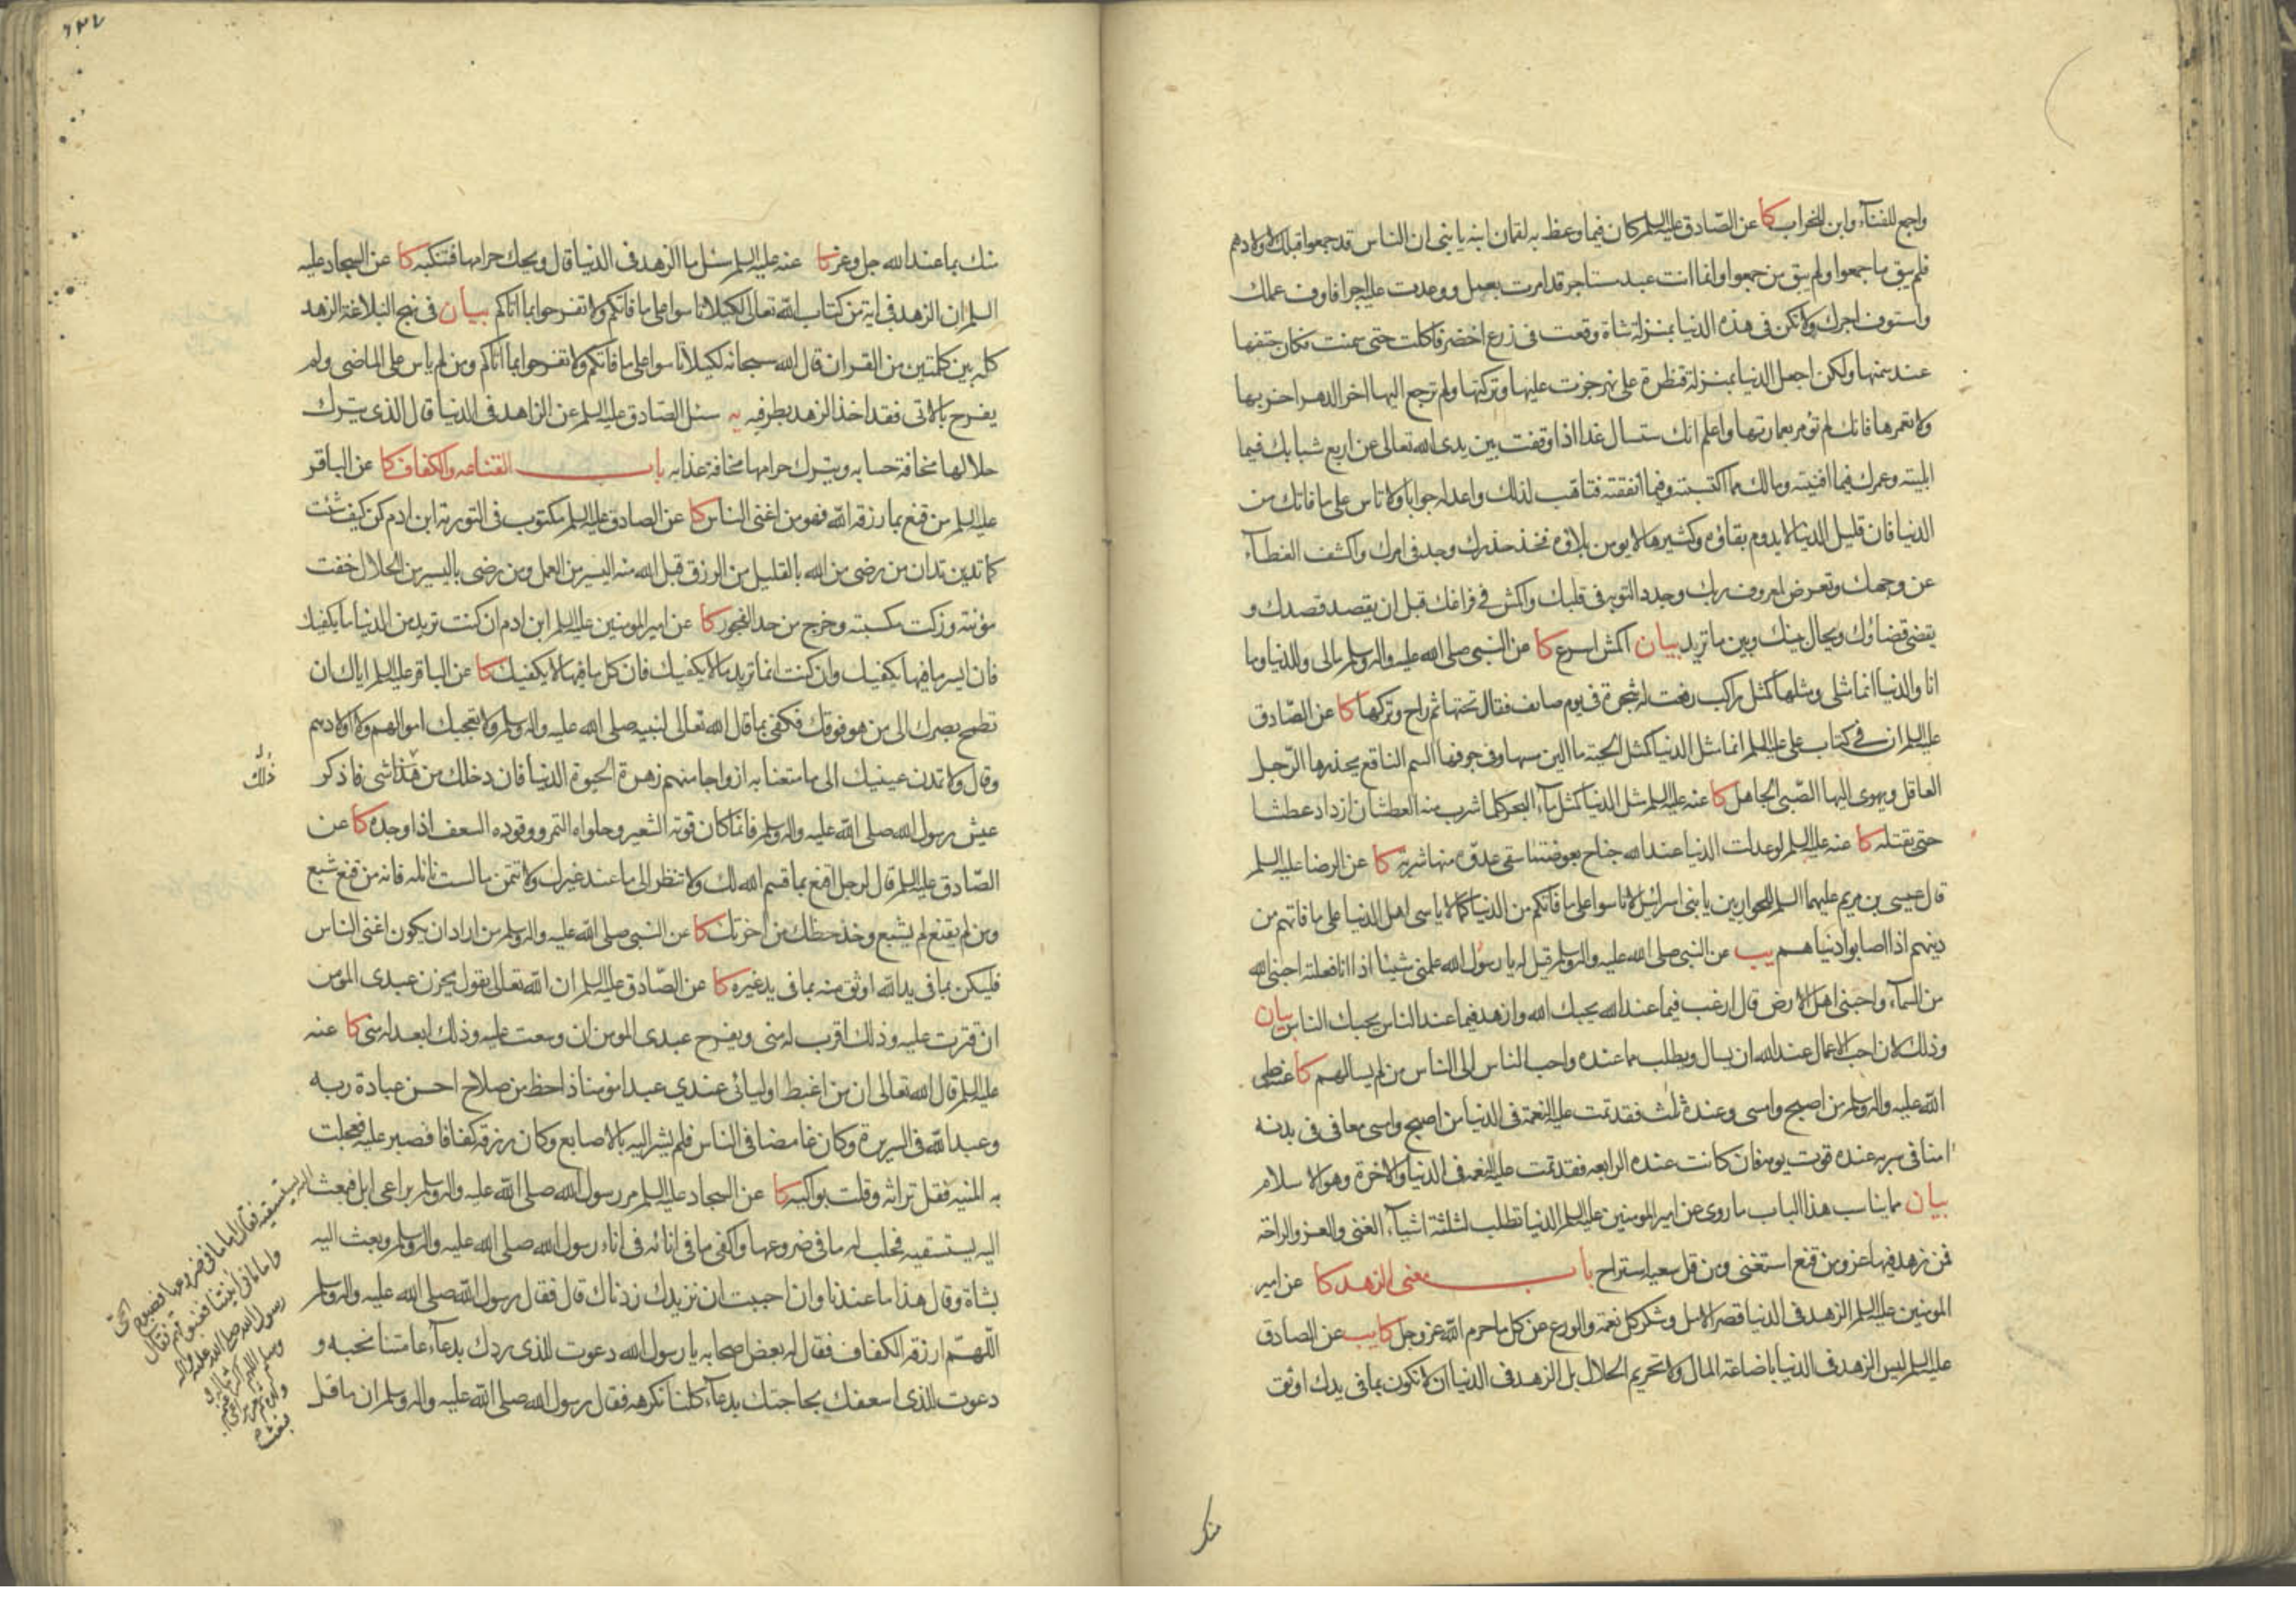 واجمع للفناء وابن للخراب كا عن الصّادق عليه السلم كان فيما وعظ به لقمان ابنه يا بنى ان الناس قد جمعوا قبلك لاولادهم
فلم يبق ما جمعوا ولم يبق من جمعوا له وانما انت عبد مستاجر قد امرت بعمل ووعدت عليه اجرا فاوف عملك
واستوف اجرك ولا تكن فى هذه الدنيا بمنزلة شاة وقعت فى زرع اخضر فاكلت حتى سمنت فكان حتفها
عند سمنها ولكن اجعل الدنيا بمنزلة قنطرة على نهر جزت عليها وتركتها ولم ترجع اليها اخر الدهر اخربها
ولا تعمرها فانك لم تؤمر بعمارتها واعلم انك ستسال غدا اذا وقفت بين يدى الله تعالى عن اربع شبابك فيما
ابليته وعمرك فيما افنيته ومالك مما اكتسبته وفيما انفقته فتاهب لذلك واعد له جوابا ولا تاس على ما فاتك من
الدنيا فان قليل الدنيا لا يدوم بقاؤه وكثيرها لا يومن بلاؤه فخذ حذرك وجد فى امرك واكشف الغطآء
عن وجهك وتعرض لمعروف ربك وجدد التوبه فى قلبك واكمش فى فراغك قبل ان يقصد قصدك و
يقضى قضاؤك ويحال بينك وبين ما تريد بيان اكمش اسرع كا عن النبى صلى الله عليه واله وسلم مالى وللدنيا وما
انا والدنيا انما مثلى ومثلها كمثل راكب رفعت له شجرة فى يوم صايف فقال تحتها ثم راح وتركها كا عن الصّادق
عليه السلم ان فى كتاب على عليه السلم انما مثل الدنيا كمثل الحية ما الين مسها وفى جوفها السم الناقع يحذرها الرّجل
العاقل ويهوى اليها الصّبى الجاهل كا عنه عليه السلم مثل الدنيا كمثل مآء البحر كلما شرب منه العطشان ازداد عطشا
حتى يقتله كا عنه عليه السلم لو عدلت الدنيا عند الله جناح بعوضة لما سقى عدوه منها شربة كا عن الرضا عليه السلم
قال عيسى بن مريم عليهما السلم للحواريين يا بنى اسرائيل لا تاسوا على ما فاتكم من الدنيا كما لا ياسى اهل الدنيا على ما فاتهم من
دينهم اذا اصابوا دنياهم يب عن النبى صلى الله عليه واله وسلم قيل له يا رسول الله علمنى شيئا اذا انا فعلته احبنى الله
من السمآء واحبنى اهل الارض قال ارغب فيما عند الله يحبك الله وازهد فيما عند الناس يحبك الناس بيان
وذلك لان احب الاعمال عند الله ان يسال ويطلب ما عنده واحب الناس الى الناس من لم يسالهم كا عنه صلى
الله عليه واله وسلم من اصبح وامسى وعنده ثلث فقد تمت عليه النعمة فى الدنيا من اصبح وامسى معافى فى بدنه
امنا فى سربه عنده قوت يومه فان كانت عنده الرابعه فقد تمت عليه النعمه فى الدنيا والاخرة وهو الاسلام
بيان مما يناسب هذا الباب ما روى عن امير المومنين عليه السلم الدنيا تطلب لثلثة اشيآء الغنى والعز والراحة
فمن زهد فيها عز ومن قنع استغنى ومن قل سعيه استراح باب معنى الزهد كا عن امير
المومنين عليه السلم الزهد فى الدنيا قصر الامل وشكر كل نعمة والورع عن كل ما حرم الله عز وجل كا يب عن الصادق
عليه السلم ليس الزهد فى الدنيا باضاعة المال ولا تحريم الحلال بل الزهد فى الدنيا ان لا تكون بما فى يدك اوثق
منك
٦٣٧
منك بما عند الله جل وعز كا عنه عليه السلم سئل ما الزهد فى الدنيا قال ويحك حرامها فتنكبه كا عن السجاد عليه
السلم ان الزهد فى اية من كتاب الله تعالى لكيلا تاسوا على ما فاتكم ولا تفرحوا بما اتاكم بيان فى نهج البلاغة الزهد
كله بين كلمتين من القران قال الله سبحانه لكيلا تاسوا على ما فاتكم ولا تفرحوا بما اتاكم ومن لم ياس على الماضى ولم
يفرح بالاتى فقد اخذ الزهد بطرفيه يه سئل الصّادق عليه السلم عن الزاهد فى الدنيا قال الذى يترك
حلالها مخافة حسابه ويترك حرامها مخافة عذابه باب القناعه والكفاف كا عن الباقر
عليه السلم من قنع بما رزقه الله فهو من اغنى الناس كا عن الصادق عليه السلم مكتوب فى التورية ابن ادم كن كيف شئت
كما تدين تدان من رضى من الله بالقليل من الرزق قبل الله منه اليسير من العمل ومن رضى باليسير من الحلال خفت
مؤنته وزكت مكسبته وخرج من حد الفجور كا عن امير المومنين عليه السلم ابن ادم ان كنت تريد من الدنيا ما يكفيك
فان ايسر ما فيها يكفيك وان كنت انما تريد ما لا يكفيك فان كل ما فيها لا يكفيك كا عن الباقر عليه السلم اياك ان
تطمح بصرك الى من هو فوقك فكفى بما قال الله تعالى لنبيه صلى الله عليه واله وسلم ولا تعجبك اموالهم ولا اولادهم
وقال ولا تمدن عينيك الى ما متعنا به ازواجا منهم زهرة الحيوة الدنيا فان دخلك من هذا شى فاذكر
ذلك
عيش رسول الله صلى الله عليه واله وسلم فانما كان قوته الشعير وحلواه التمر ووقوده السعف اذا وجده كا عن
الصّادق عليه السلم قال لرجل اقنع بما قسم الله لك ولا تنظر الى ما عند غيرك ولا تتمن ما لست نائله فانه من قنع شبع
ومن لم يقنع لم يشبع وخذ حظك من اخرتك كا عن النبى صلى الله عليه واله وسلم من اراد ان يكون اغنى الناس
فليكن بما فى يد الله اوثق منه بما فى يد غيره كا عن الصّادق عليه السلم ان الله تعالى يقول يحزن عبدى المومن
ان قترت عليه وذلك اقرب له منى ويفرح عبدى المومن ان وسعت عليه وذلك ابعد له منى كا عنه
عليه السلم قال الله تعالى ان من اغبط اوليائى عندى عبدا مومنا ذا حظ من صلاح احسن عبادة ربه
وعبد الله فى السريرة وكان غامضا فى الناس فلم يشر اليه بالاصابع وكان رزقه كفافا فصبر عليه فعجلت
به المنيه فقل تراثه وقلت بواكيه كا عن السجاد عليه السلم مر رسول الله صلى الله عليه واله وسلم براعى ابل فبعث
اليه يستسقيه فحلب له ما فى ضروعها واكفى ما فى انائه فى اناء رسول الله صلى الله عليه واله وسلم وبعث اليه
بشاة وقال هذا ما عندنا وان احببت ان نزيدك زدناك قال فقال رسول الله صلى الله عليه واله وسلم
اللّهمّ ارزقه الكفاف فقال له بعض اصحابه يا رسول الله دعوت للذى ردك بدعآء عامتنا نحبه و
دعوت للذى اسعفك بحاجتك بدعآء كلنا نكرهه فقال رسول الله صلى الله عليه واله وسلم ان ما قل
يستسقيه فقال اما ما فى ضروعها فصبوح الحى
واما ما فى انيتنا فغبوقهم فقال
رسول الله صلى الله عليه واله
وسلم اللهم اكثر ماله و
ولده ثم مر براعى غنم
فبعث